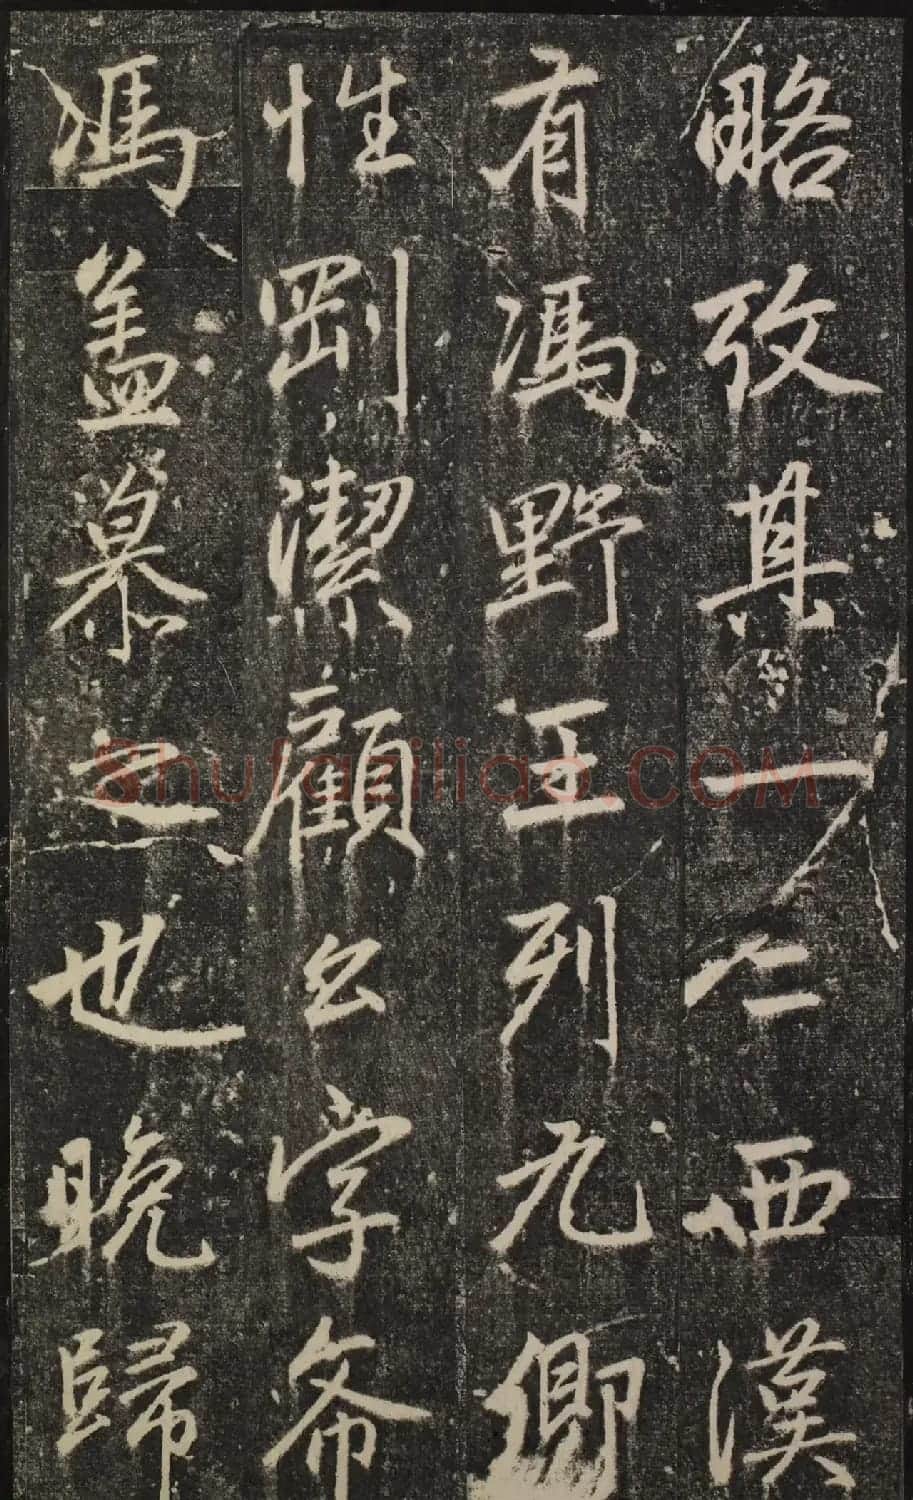 略攷其一二西漢
有馮野王列九卿
性剛潔顧公字希
馮盖慕之也晚歸
Shufaziliao.COM